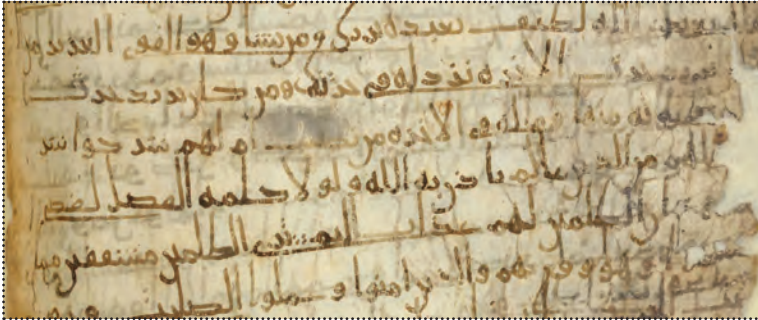 الله لطيف بعبده يرزق من يشا وهو القوى العزيز من
حرث الاخره نزد له فى حرثه ومن كان يريد حرث
نوته منها وما له فى الاخره من نصيب ام لهم شركوا شر
لهم من الدين ما لم ياذن به الله ولولا كلمه الفصل لقضى
الظلمين لهم عذاب اليم ترى الظلمين مشفقين مما
وهو وقع بهم والذين امنوا وعملوا الصلحت فى